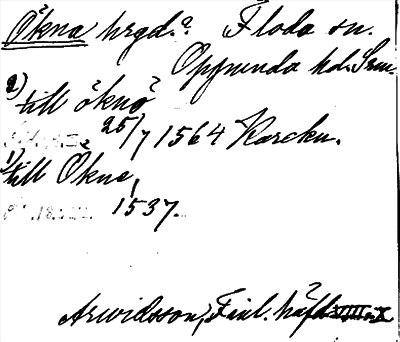 Ökna hrgd.? Floda sn.
Oppunda hd. Srm.
2) till öknö
25/7 1564 Karckn.
1) till Ökne,
1537.
Arwidsson, Finl. häfd